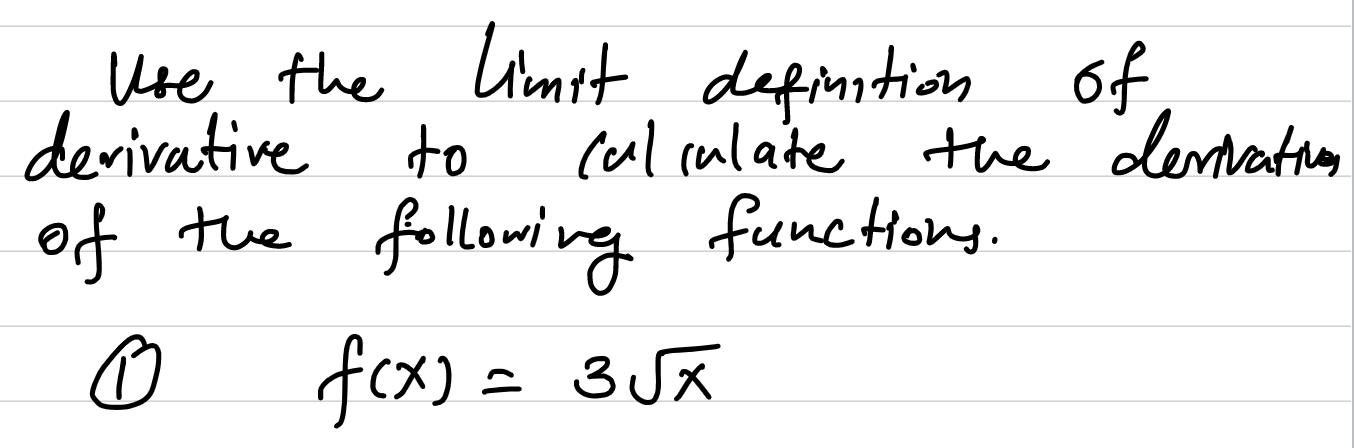 Use the limit definition of
derivative to calculate the derivatives
of the following functions.
① f(x) = 3√x